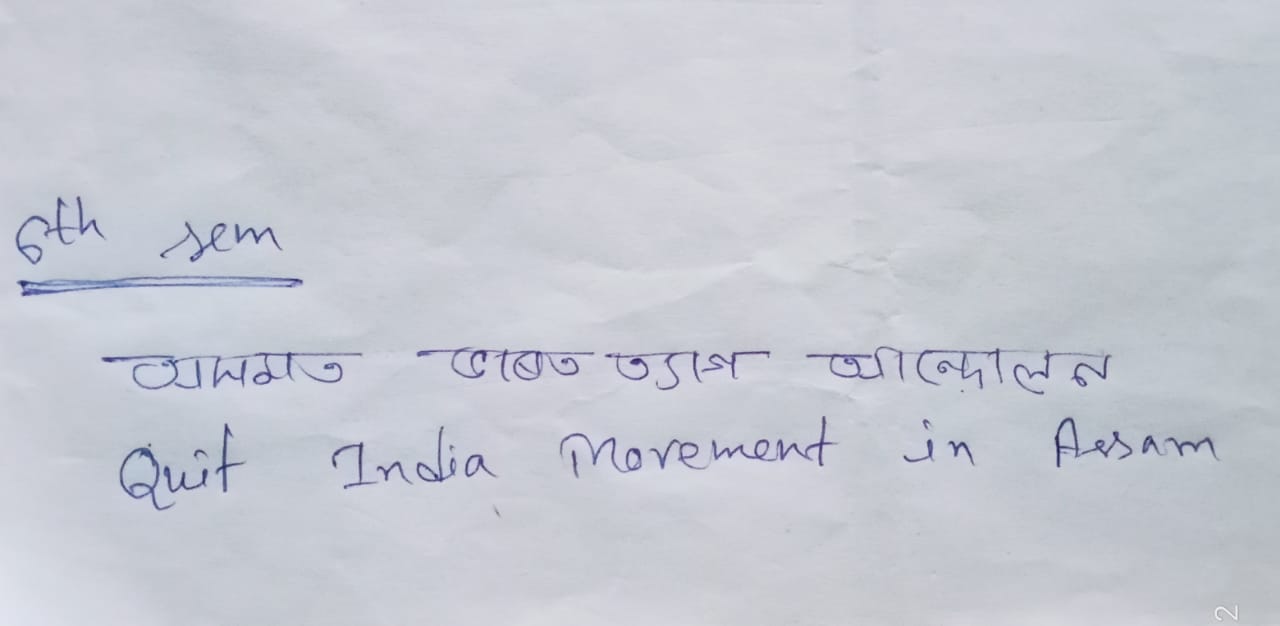 6th sem
অসমত ভাৰত ত্যাগ আন্দোলন
Quit India Movement in Assam
2